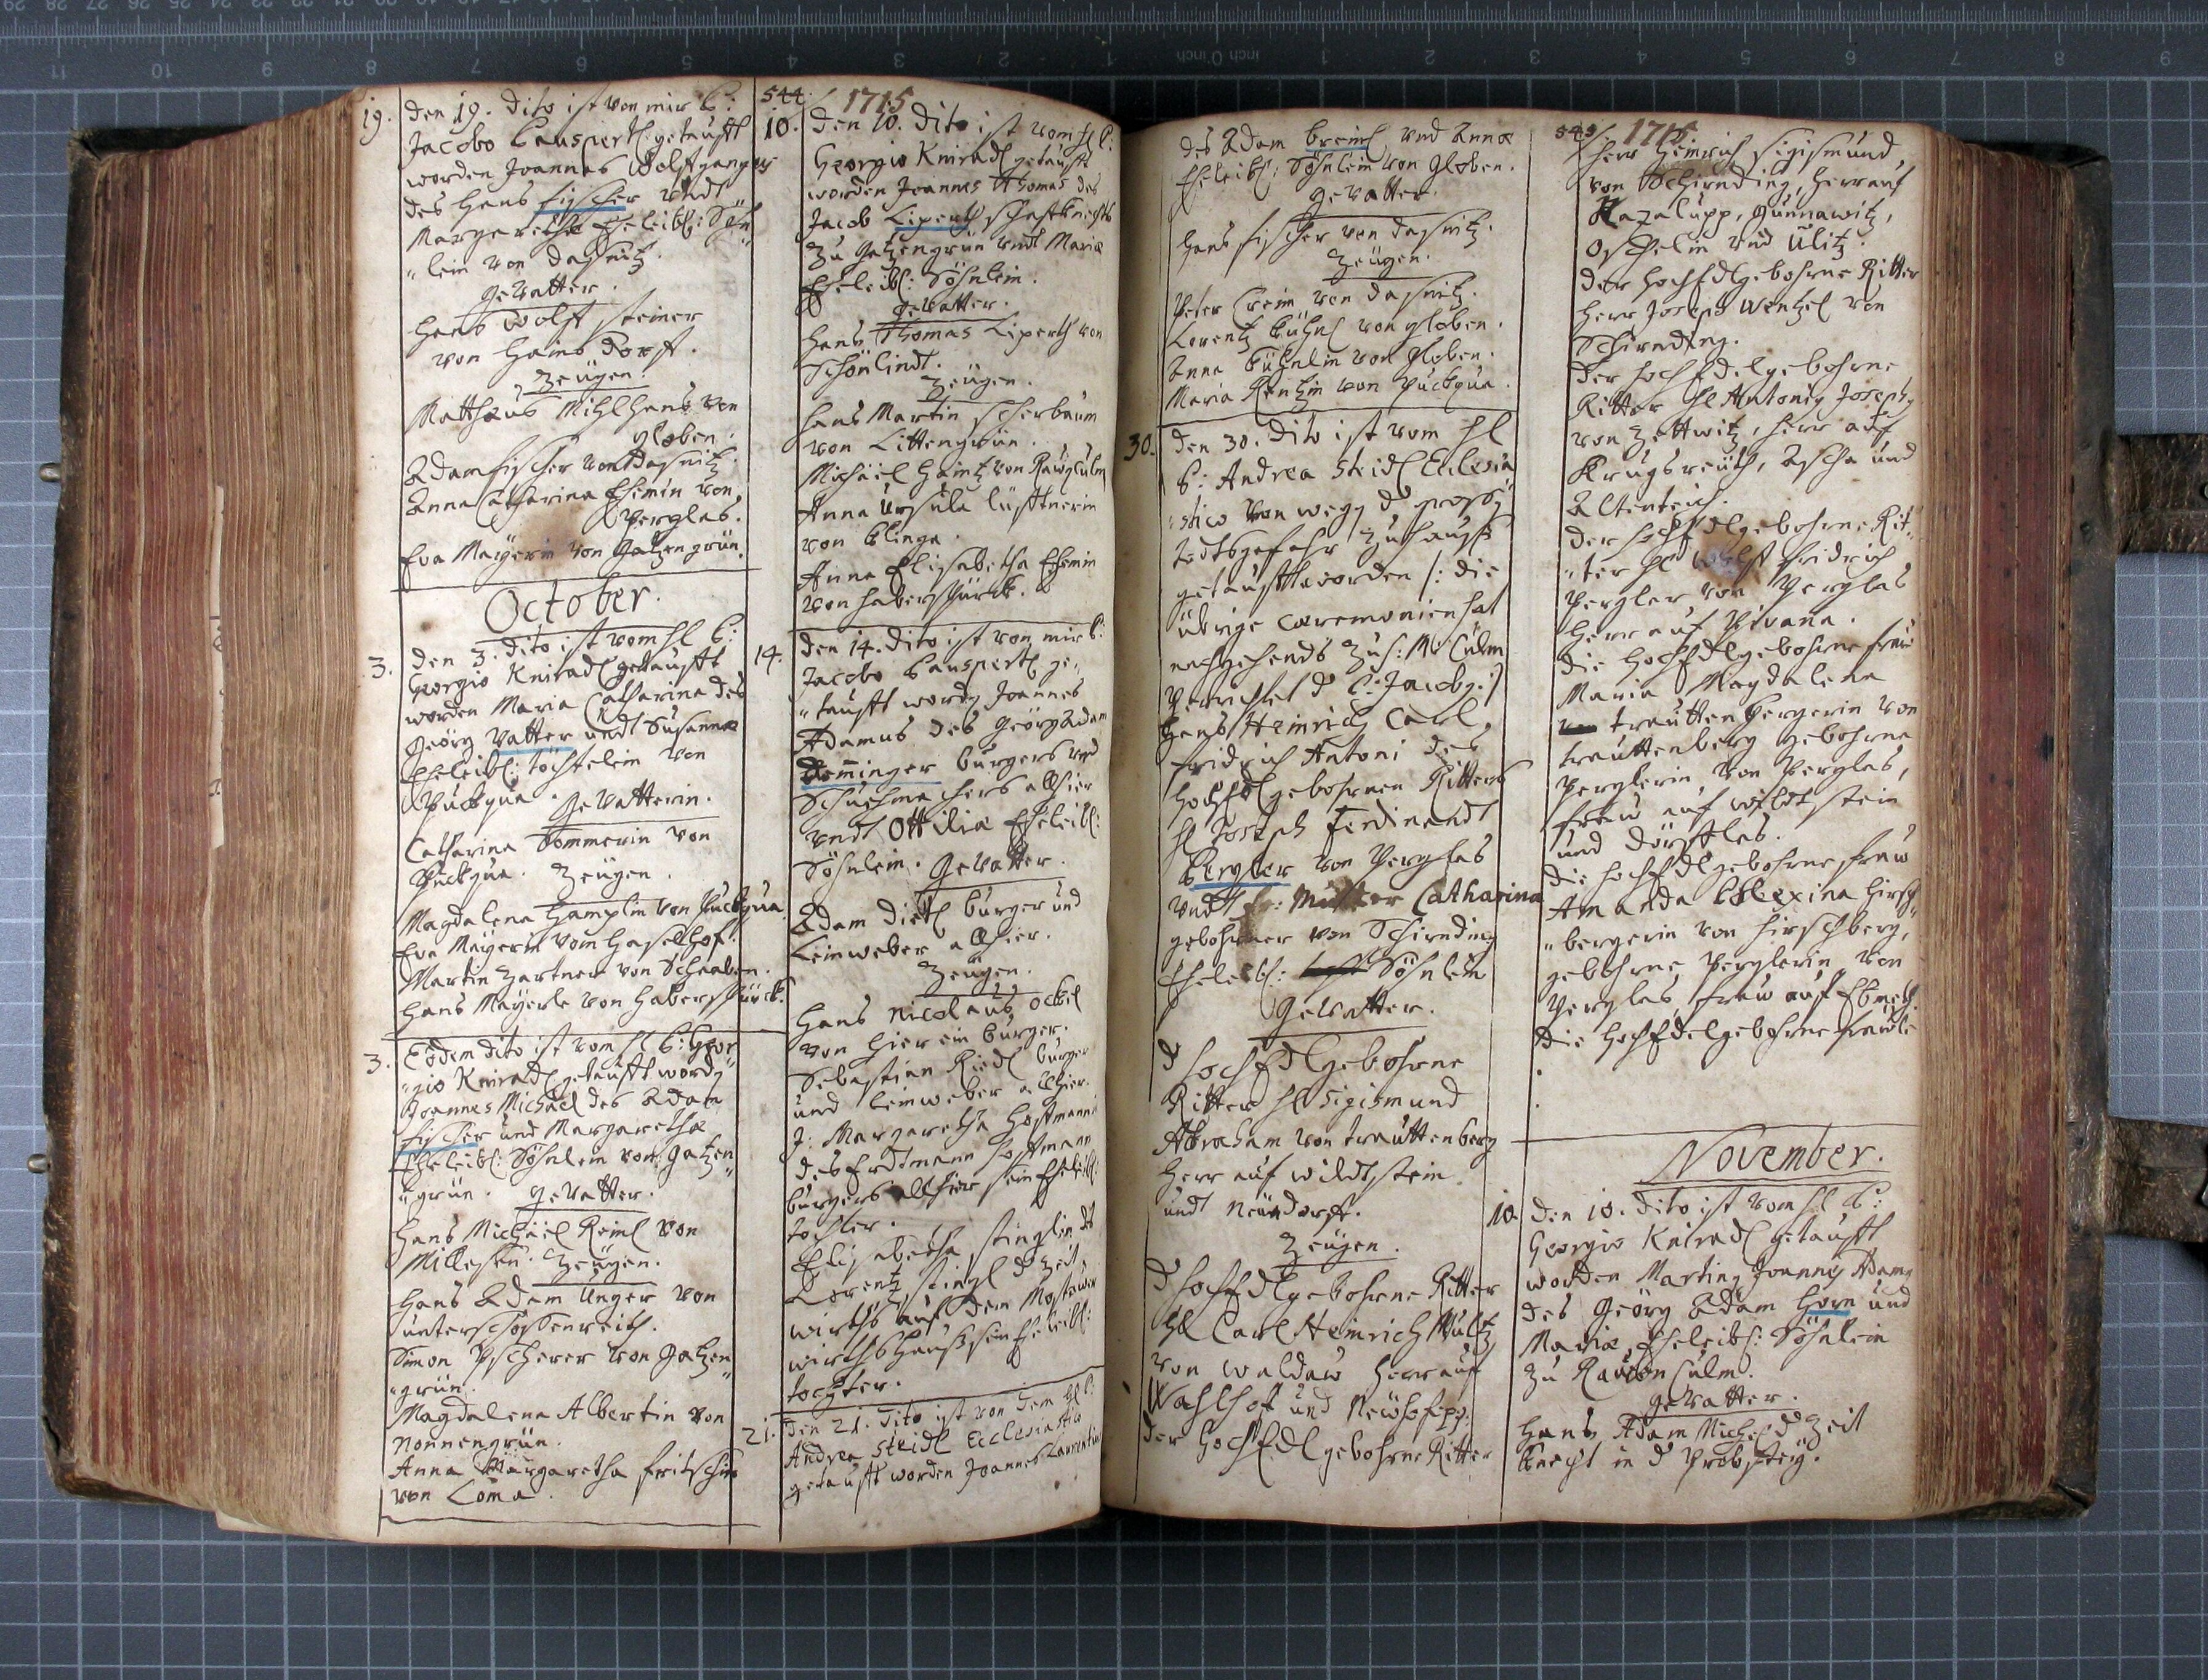 544
1715
19.
den 19. dito ist von mir C:
Jacobo Causpertl getaufft
worden Joannes Wolfgangus
des Hans fischer vndt
Margaretha Eheleibl: Söhn„
„lein von daßnitz.
gevatter.
Hans Wolff steiner
von Hains dorff.
Zeügen.
Matthæus Mihlhans von
globen.
Adam fischer von daßnitz.
Anna Catharina von
Perglas.
Eva Mayerin von Gatzengrün.
October.
3.
den 3. dito ist vom hl C:
Georgio Kniradl getaufft
worden Maria Catharina des
Geörg Vatter undt Susanna
Eheleibl: töchtelein von
Puckgua. Gevatterin.
Catharina Sommerin von
Puckgua. Zeügen.
Magdalena Hamplin von Puckgua.
Eva Mayerin vom Haselhof.
Martin Zartner von Schaaben.
Hans Mayerle von Haberspürck.
3.
Eodem dito ist vom hl C: Geor„
„gio Kniradl getaufft word
Joannes Michael des Adam
fischer und Margaretha
Eheleibl: Söhnlein von Gatzen„
„grün. gevatter.
Hans Michäel Reinl von
Zeügen.
Hans Adam Unger von
unterschossenreith.
Simon Pscherer von Gatzen„
„grün.
Magdalena Albertin von
Nonnengrün.
Anna Margaretha fritschin
von Loma.
10.
den 10. dito ist vom hl C:
Georgio Kniradl getaufft
worden Joannes Thomas des
Jacob Liperth schaffknechts
zu Gatzengrün vndt Maria
Eheleibl: Söhnlein.
gevatter.
Hans Thomas Liperth von
Schönlindt.
Zeügen.
Hans Martin scherbaum
von Littengrün.
Michäel Haintz von Rauhculm
Anna Ursula lüfftnerin
von Klinga.
Anna Elisabetha
von Haberspürck.
14.
den 14. dito ist von mir C:
Jacobo Causpertl ge„
„taufft word Joannes
Adamus des Geörg Adam
Demminger burgers vnd
Schuhmachers allhier
vndt Ottilia Eheleibl:
Söhnlein. Gevatter.
Adam dietl burger und
Leinweber allhier.
Zeügen.
Hans Nicolaus ockel
von hier ein burger.
Sebastian Riedl burger
und leinweber allhier.
J: Margaretha Hoffmannin
des Erdtmann Hoffmann
burgers allhier sein Eheleibl:
tochter.
Elisabetha stinglin ds
Lorentz stingl d Zeit
wirths auf dem Mostauer
wirthshauß sein Eheleibl:
tochter.
21.
den 21. dito ist von dem hl C:
Andrea steidl Ecclesiastico
getaufft worden Joannes Laurentius
des Adam Creinl vnd Anna
Eheleibl: Söhnlein von Globen.
gevatter.
Hans fischer von daßnitz.
Zeügen.
Peter Creim von daßnitz.
Lorentz Kühnl von globen.
Anna Kühnlin von Globen.
Maria Rentzin von Puckgua.
30.
den 30. dito ist vom hl
C: Andrea steidl Ecclesia„
„stico von weg d grosse
todtsgefahr zuhauß
getaufft worden /: die
übrige cæremonien hat
nachgehends zu S: M: Culm
verrichtet d C: Jacob:/
Hans Heinrich Carl
fridrich Antoni des
HochEdlgebohrnen Ritters
hl Joseph Ferdinandt
Pergler von Perglas
vndt fr: Mutter Catharina
gebohrner von Schirnding
Eheleibl: Söhnlein
Gevatter.
d HochEdlgebohrne
Ritter hl Sigismund
Abraham von trauttenberg
Herr auf wildstein
undt Neüdorff.
Zeügen.
d HochEdlgebohrne Ritter
hl Carl Heinrich Mültz
von waldaw Herr auf
Wahlhof und Newhof pp:
der HochEdlgebohrne Ritter
545
1715
Herr Heinrich Sigismund
von Schirnding, Herr auf
Kazalupp, Gunnawitz,
Oschelin und Ülitz.
der HochEdlgebohrne Ritter
Herr Joseph Wentzel von
Schirnding.
der HochEdelgebohrne
Ritter hl Antoni Joseph
von Zettwitz, Herr auf
Krugsreuth, Ascha und
Altenteich.
der HochEdlgebohrne Rit„
„ter hl Wolff fridrich
Pergler von Perglas
Herr auf Pivana.
die HochEdlgebohrne fraw
Maria Magdalena
trauttenbergerin von
trauttenberg gebohrne
Perglerin von Perglas,
fraw auf wildstein
und dörfflas.
die HochEdlgebohrne fraw
Amanda Alexina Hirsch„
„bergerin von Hirschberg,
gebohrne Perglerin von
Perglas, fraw auf Ebmeth.
die HochEdelgebohrne fraüle
November.
10.
den 10. dito ist vom hl C:
Georgio Kniradl getaufft
worden Martin Joannes Adam
des Geörg Adam Horn und
Maria, Eheleibl: Söhnlein
zu Rauhen Culm.
gevatter.
Hans Adam Michel d Zeit
knecht in d Probsteij.